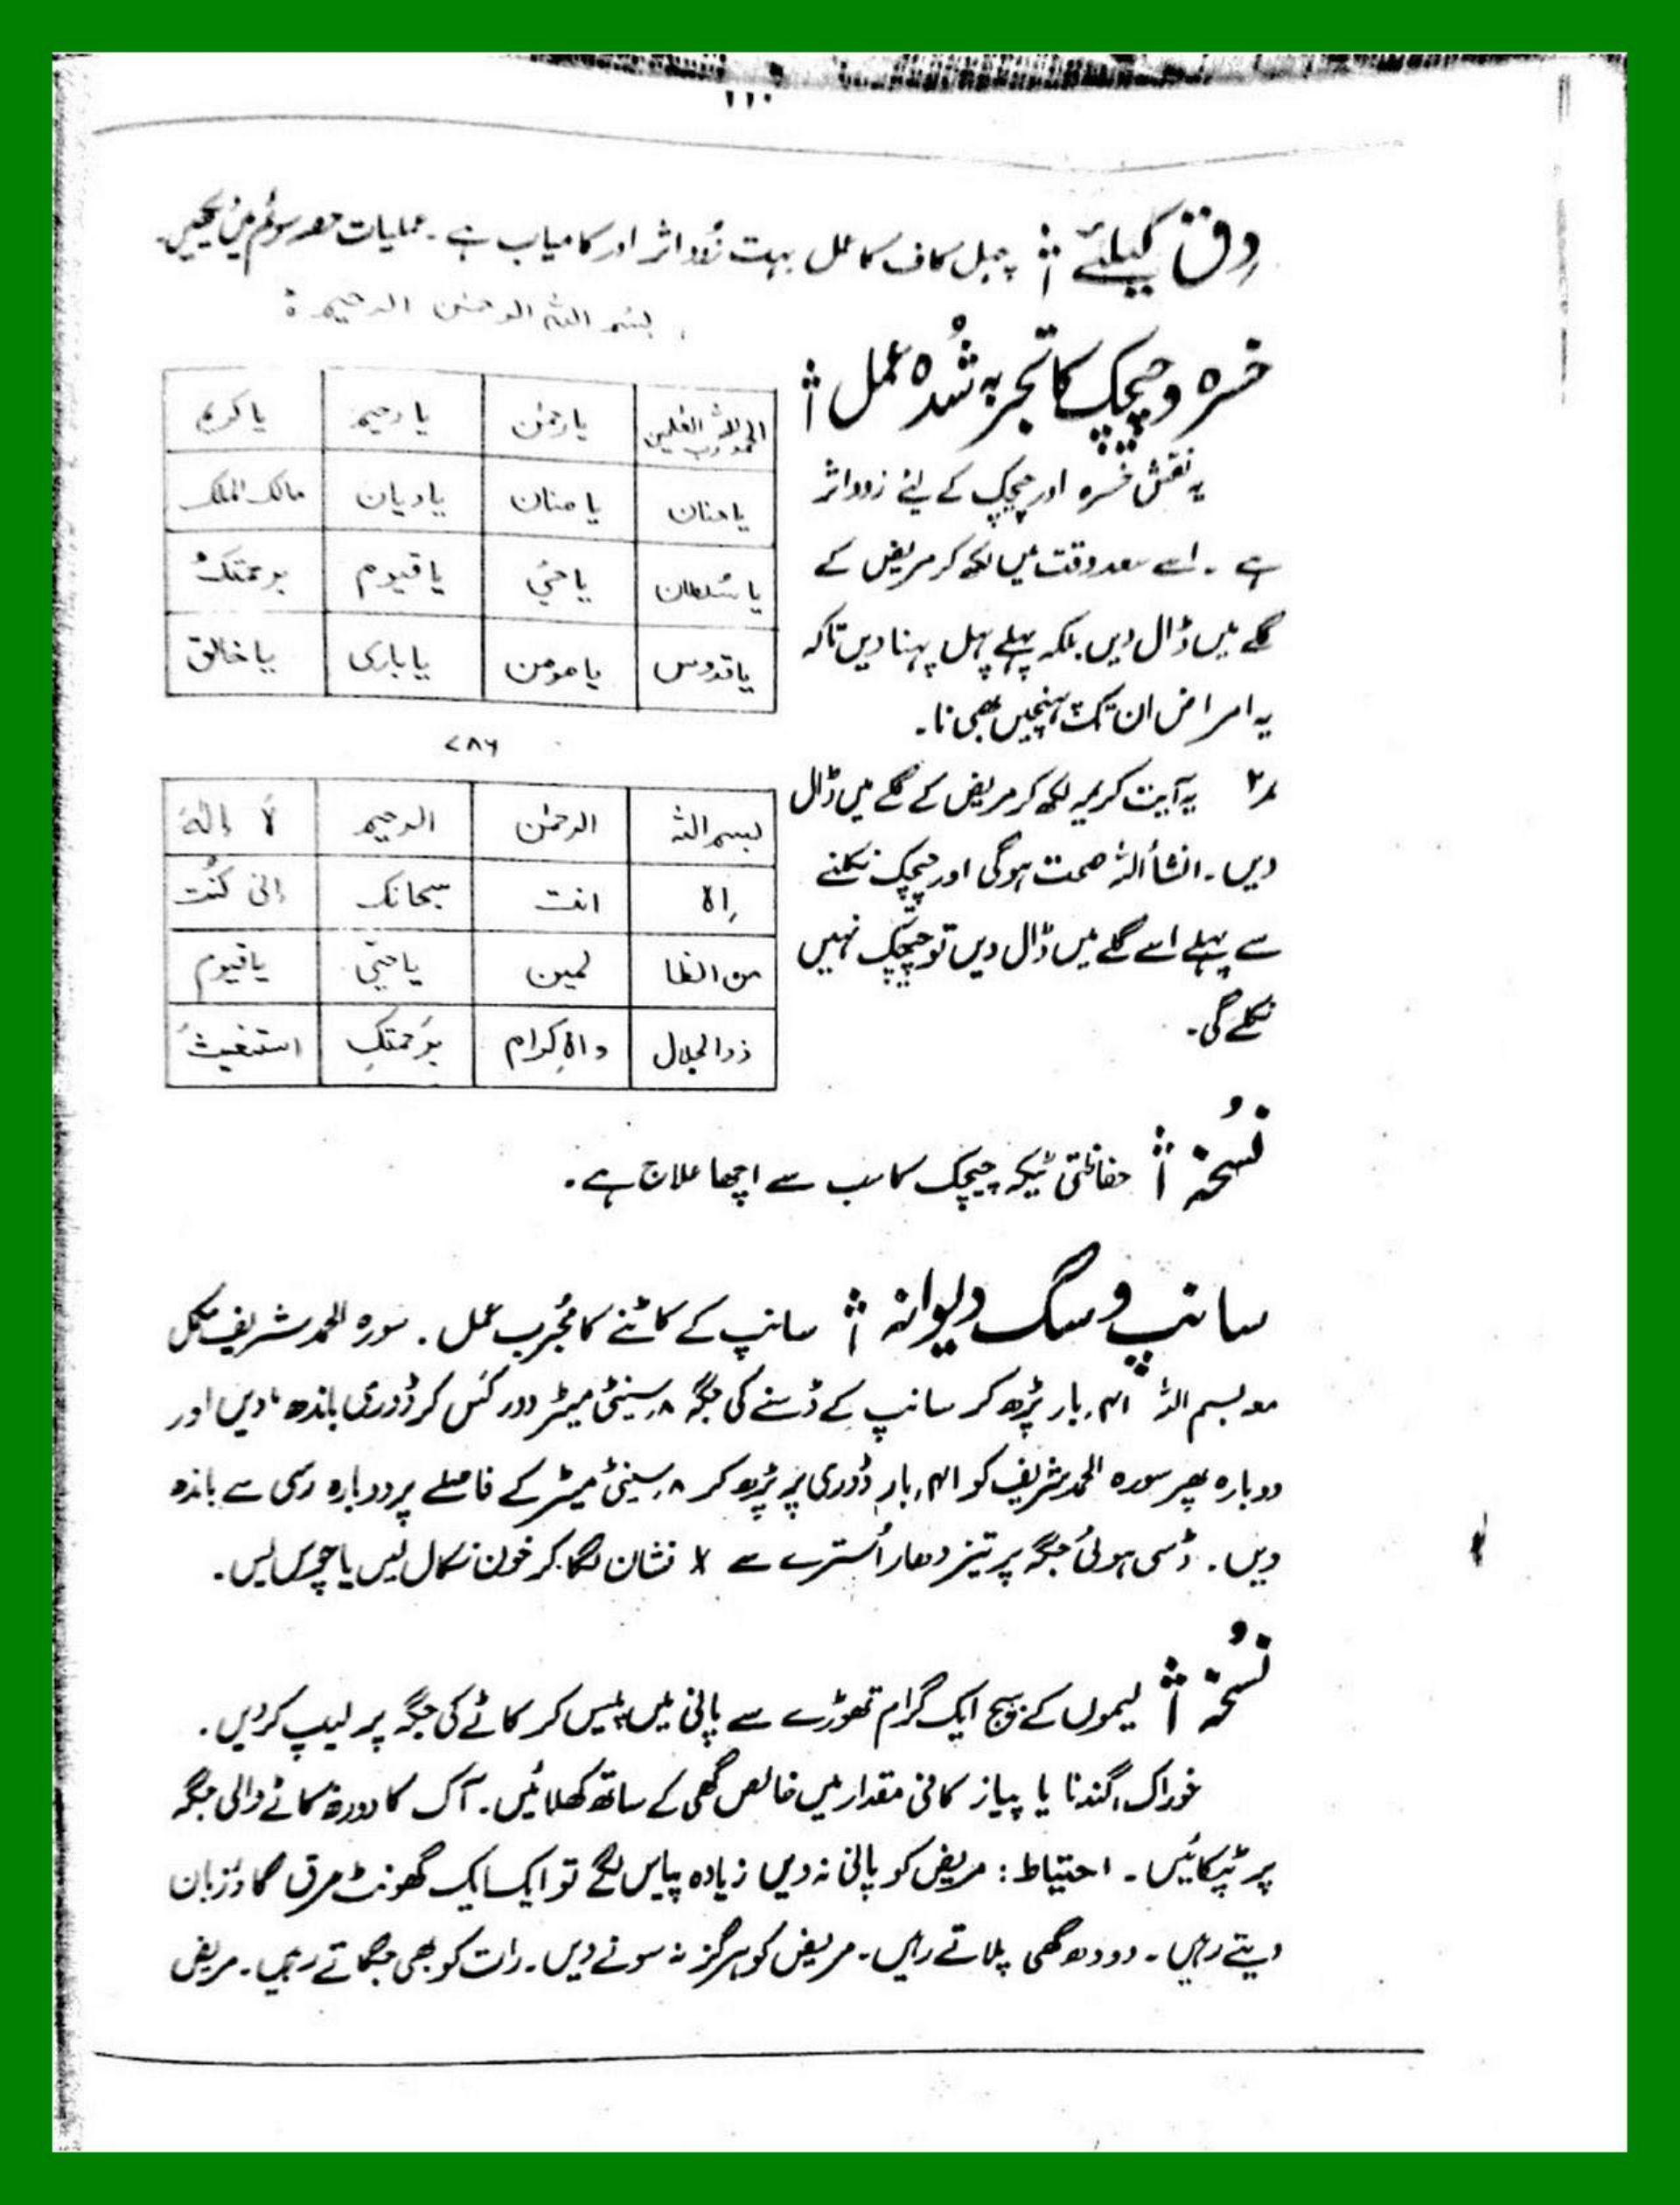 ۱۱۰
دِق کیلئے: چہل کاف کا عمل بہت زُود اثر اور کامیاب ہے۔ عملیات حصہ سوئم میں دیکھیں۔
بسم اللہ الرحمٰن الرحیم:
خسرہ و چیچک کا تجربہ شُدہ عمل:
یہ نقش خسرہ اور چیچک کے لئے زود اثر
ہے۔ اسے سعد وقت میں لکھ کر مریض کے
گلے میں ڈال دیں بلکہ پہلے پہل پہنا دیں تاکہ
یہ امراض ان تک پہنچیں بھی نا۔
الحمد للہ رب العٰلمین | یا رحمٰن | یا رحیم | یا کریم
یا حنان | یا منان | یا دیان | مالک الملک
یا سُلطان | یا حیّ | یا قیوم | برحمتک
یا قدوس | یا مومن | یا باری | یا خالق
نمبر۲ یہ آیت کریمہ لکھ کر مریض کے گلے میں ڈال
دیں۔ انشأ اللہ صحت ہوگی اور چیچک نکلنے
سے پہلے اسے گلے میں ڈال دیں تو چیچک نہیں
نکلے گی۔
۷۸۶
بسم اللہ | الرحمٰن | الرحیم | لَا اِلٰہَ
اِلا | انت | سبحانک | اِنی کُنت
من الظا | لمین | یا حیّ | یا قیوم
ذوالجلال | والاِکرام | بِرَحمتکِ | استغیثُ
نُسخہ: حفاظتی ٹیکہ چیچک کا سب سے اچھا علاج ہے۔
سانپ و سگ دیوانہ: سانپ کے کاٹنے کا مُجرب عمل۔ سورہ الحمد شریف مکمل
معہ بسم اللہ ۴۱ بار پڑھ کر سانپ کے ڈسنے کی جگہ ۸ سینٹی میٹر دور کَس کر ڈوری باندھ دیں اور
دوبارہ پھر سورہ الحمد شریف کو ۴۱ بار ڈوری پر پڑھ کر ۸ سینٹی میٹر کے فاصلے پر دوبارہ رسی سے باندھ
دیں۔ ڈسی ہوئی جگہ پر تیز دھار اُسترے سے x نشان لگا کر خون نکال لیں یا چوس لیں۔
نُسخہ: لیموں کے بیج ایک گرام تھوڑے سے پانی میں پیس کر کاٹے کی جگہ پر لیپ کر دیں۔
خوراک: گندنا یا پیاز کافی مقدار میں خالص گھی کے ساتھ کھلائیں۔ آک کا دودھ کاٹے والی جگہ
پر ٹپکائیں۔ احتیاط: مریض کو پانی نہ دیں زیادہ پیاس لگے تو ایک ایک گھونٹ عرق گاؤزبان
دیتے رہیں۔ دودھ گھی پلاتے رہیں۔ مریض کو ہرگز نہ سونے دیں۔ رات کو بھی جگاتے رہیں۔ مریض